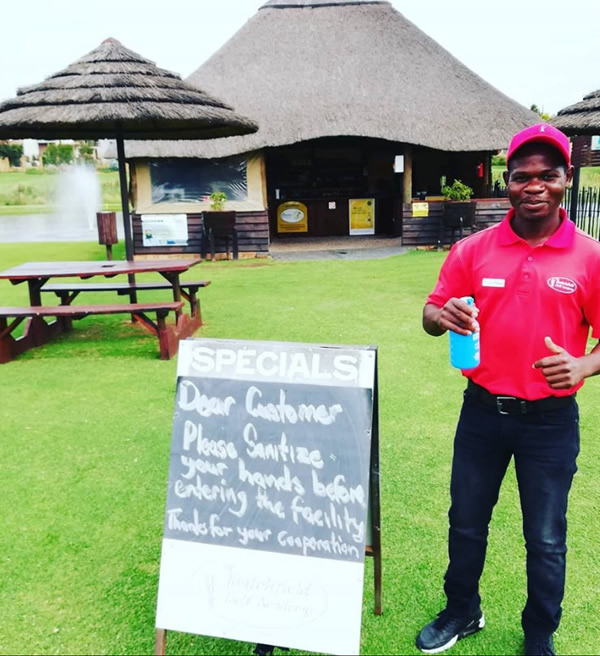 SPECIALS
Dear Customer
Please Sanitize
your hands before
entering the facility
Thanks for your cooperation
Golf Academy